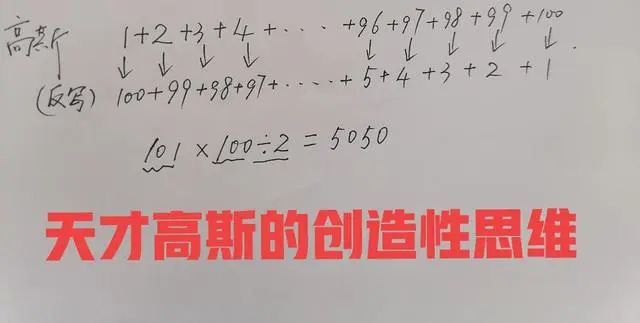 高斯 1+2+3+4+····+96+97+98+99+100
(反写) 100+99+98+97+····+5+4+3+2+1
101×100÷2=5050
天才高斯的创造性思维